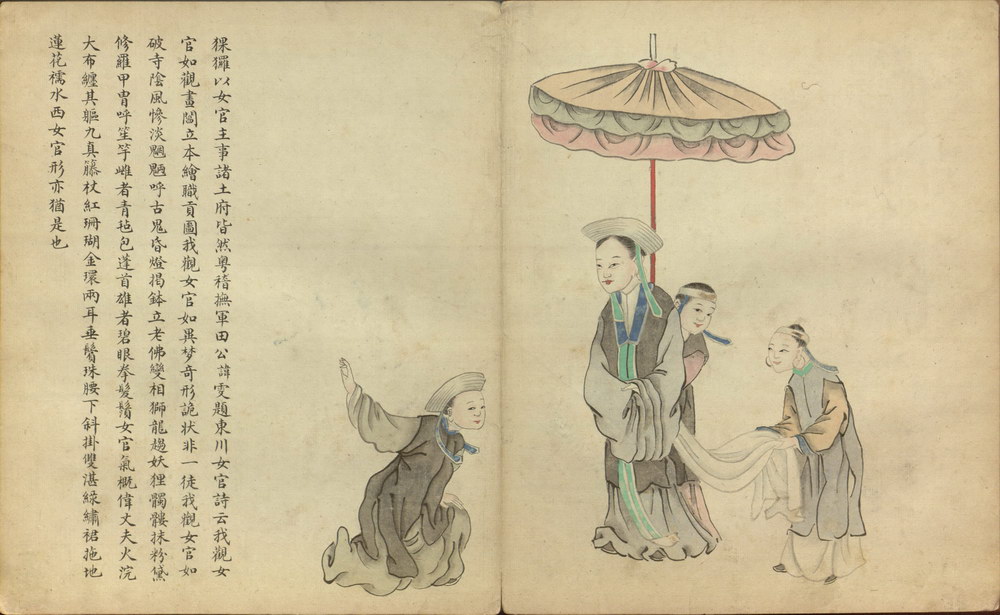 猓玀以女官主事諸土府皆然粵稽撫軍田公諱雯題東川女官詩云我觀女
官如觀畫閻立本繪職貢圖我觀女官如異梦奇形詭状非一徒我觀女官如
破寺陰風慘淡魍魎呼古鬼昏燈揭鉢立老佛變相獅龍趨妖狸髑髏抹粉黛
修羅甲冑呼笙竽雌者青毡包蓬首雄者碧眼拳髮鬚女官氣概偉丈夫火浣
大布纏其軀九真籐杖紅珊瑚金環兩耳垂鬢珠腰下斜掛雙湛綠繡裙拖地
蓮花襦水西女官形亦猶是也